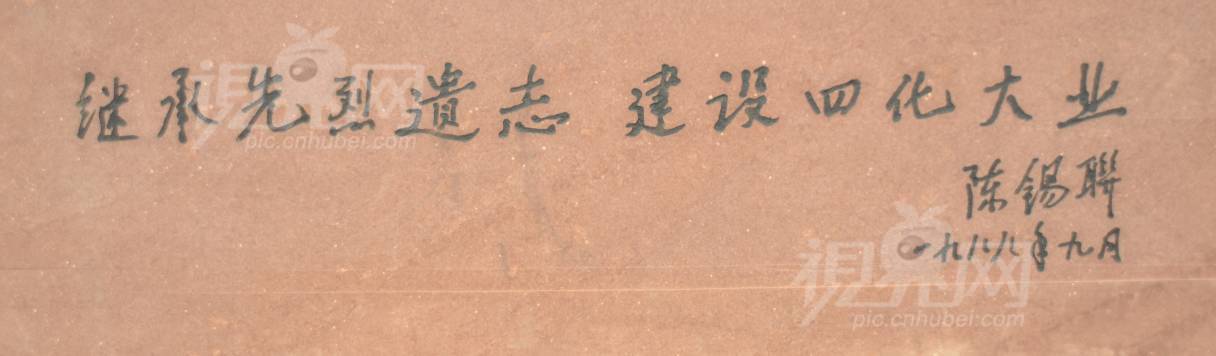 视界网
pic.cnhubei.com
继承先烈遗志 建设四化大业
陈锡聯
一九八八年九月
视界网
pic.cnhubei.com